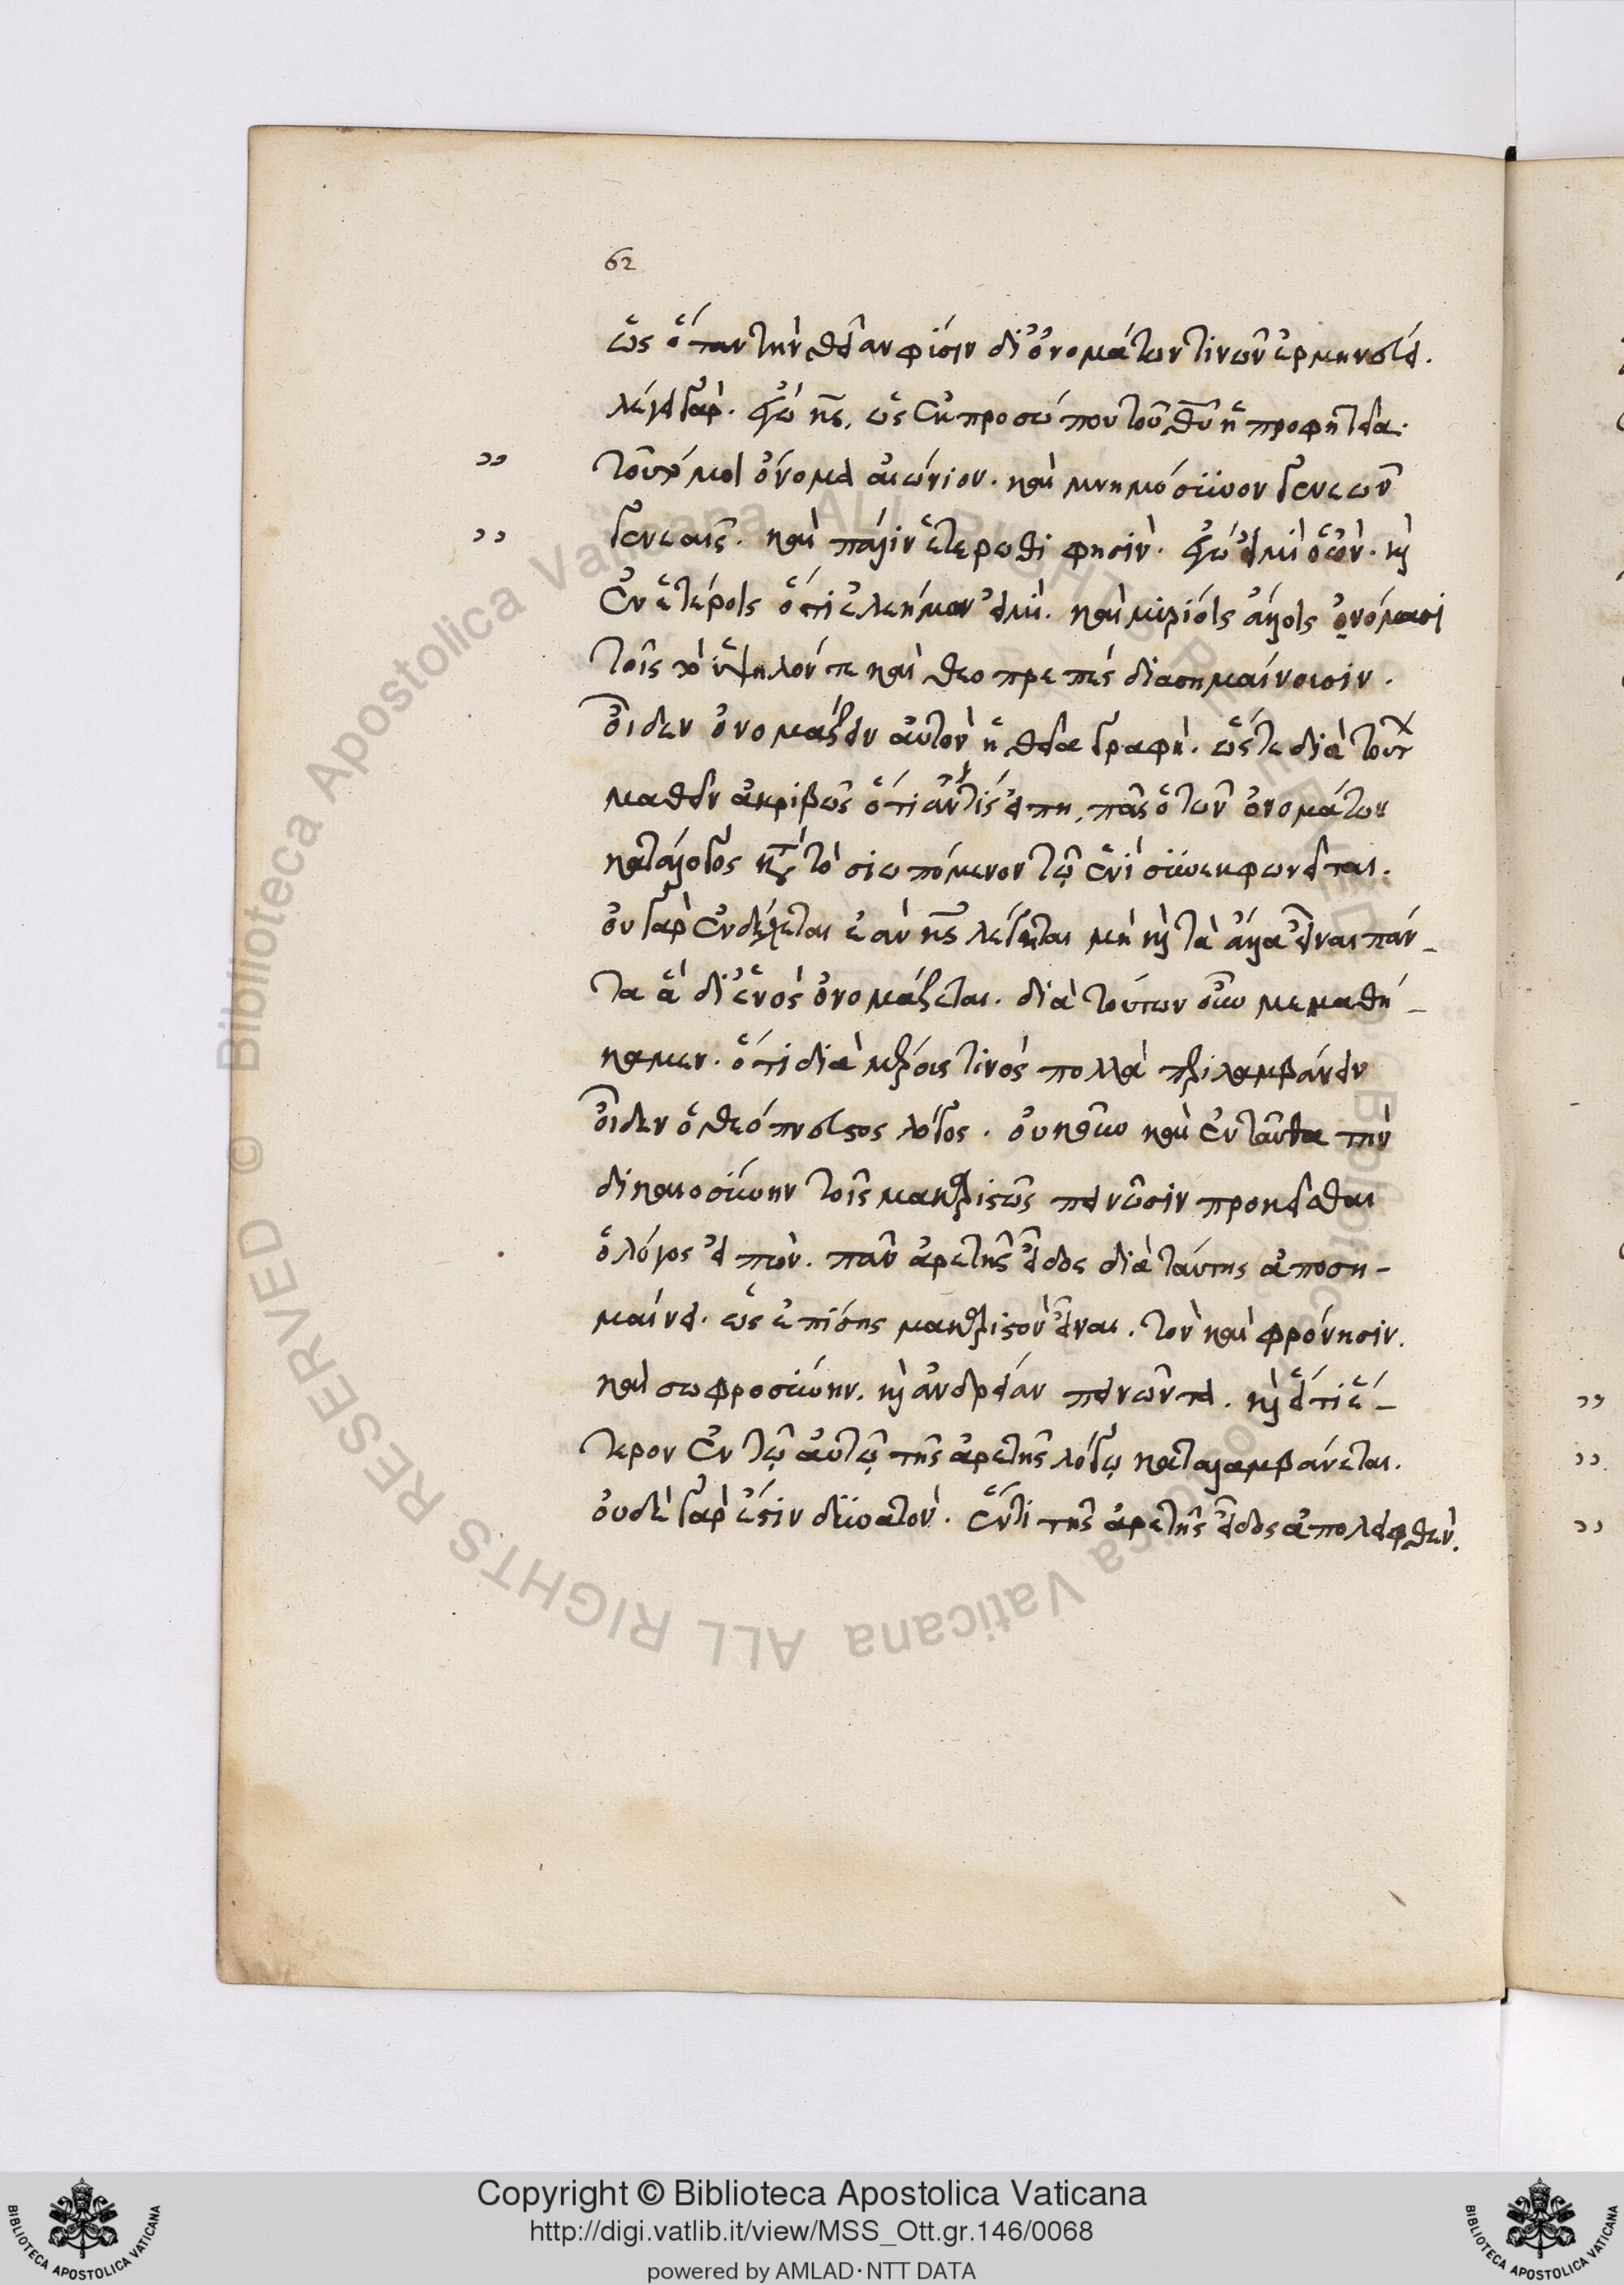 62
ὡς ὅταν τὴν θείαν φύσιν δι' ὀνομάτων τινῶν ἑρμηνεύει.
λέγει γὰρ. ὡς ἐκ προσώπου τοῦ θυ ἡ προφητεία.
” τοῦτό μοι ὄνομα αἰώνιον. καὶ μνημόσυνον γενεῶν
” γενεαῖς. καὶ πάλιν ἑτέρωθι φησὶν. ἐγώ εἰμι ὁ ὤν. καὶ
ἐν ἑτέροις ὅτι ἐλεήμων εἰμὶ. καὶ μυρίοις ἄλλοις ὀνόμασι
τοῖς τὸ ὑψηλόν τε καὶ θεοπρεπὲς διασημαίνουσιν.
οἶδεν ὀνομάζειν αὐτὸν ἡ θεία γραφὴ. ὥστε διὰ τούτ
μαθεῖν ἀκριβῶς ὅτι ἂν τις εἴπη, πᾶς ὁ τῶν ὀνομάτων
κατάλογος κατὰ τὸ σιωπόμενον τῷ ἑνὶ συνεκφωνεῖται.
οὐ γὰρ ἐνδέχεται ἐὰν κς λέγηται μὴ καὶ τὰ ἄλλα εἶναι πάν-
τα ἃ δι' ἑνὸς ὀνομάζεται. διὰ τούτων οὖν μεμαθή-
καμεν. ὅτι διὰ μέρους τινὸς πολλὰ περιλαμβάνειν
οἶδεν ὁ θεόπνευστος λόγος. οὐκοῦν καὶ ἐνταῦθα τὴν
δικαιοσύνην τοῖς μακαριστῶς πεινῶσιν προκεῖσθαι
ὁ λόγος εἰπὼν. πᾶν ἀρετῆς εἶδος διὰ ταύτης ἀποση-
μαίνει. ὡς ἐπίσης μακαριστὸν εἶναι. τὸν καὶ φρόνησιν.
καὶ σωφροσύνην. καὶ ἀνδρείαν πεινῶντα. καὶ εἴ τι ἕ- ”
τερον ἐν τῷ αὐτῷ τῆς ἀρετῆς λόγῳ καταλαμβάνεται. ”
οὐδὲ γὰρ ἐστιν δυνατὸν. ἕν τι τῆς ἀρετῆς εἶδος ἀπολειφθὲν. ”
Copyright © Biblioteca Apostolica Vaticana
http://digi.vatlib.it/view/MSS_Ott.gr.146/0068
powered by AMLAD·NTT DATA
BIBLIOTECA APOSTOLICA VATICANA
BIBLIOTECA APOSTOLICA VATICANA
© Biblioteca Apostolica Vaticana ALL RIGHTS RESERVED
© Biblioteca Apostolica Vaticana ALL RIGHTS RESERVED